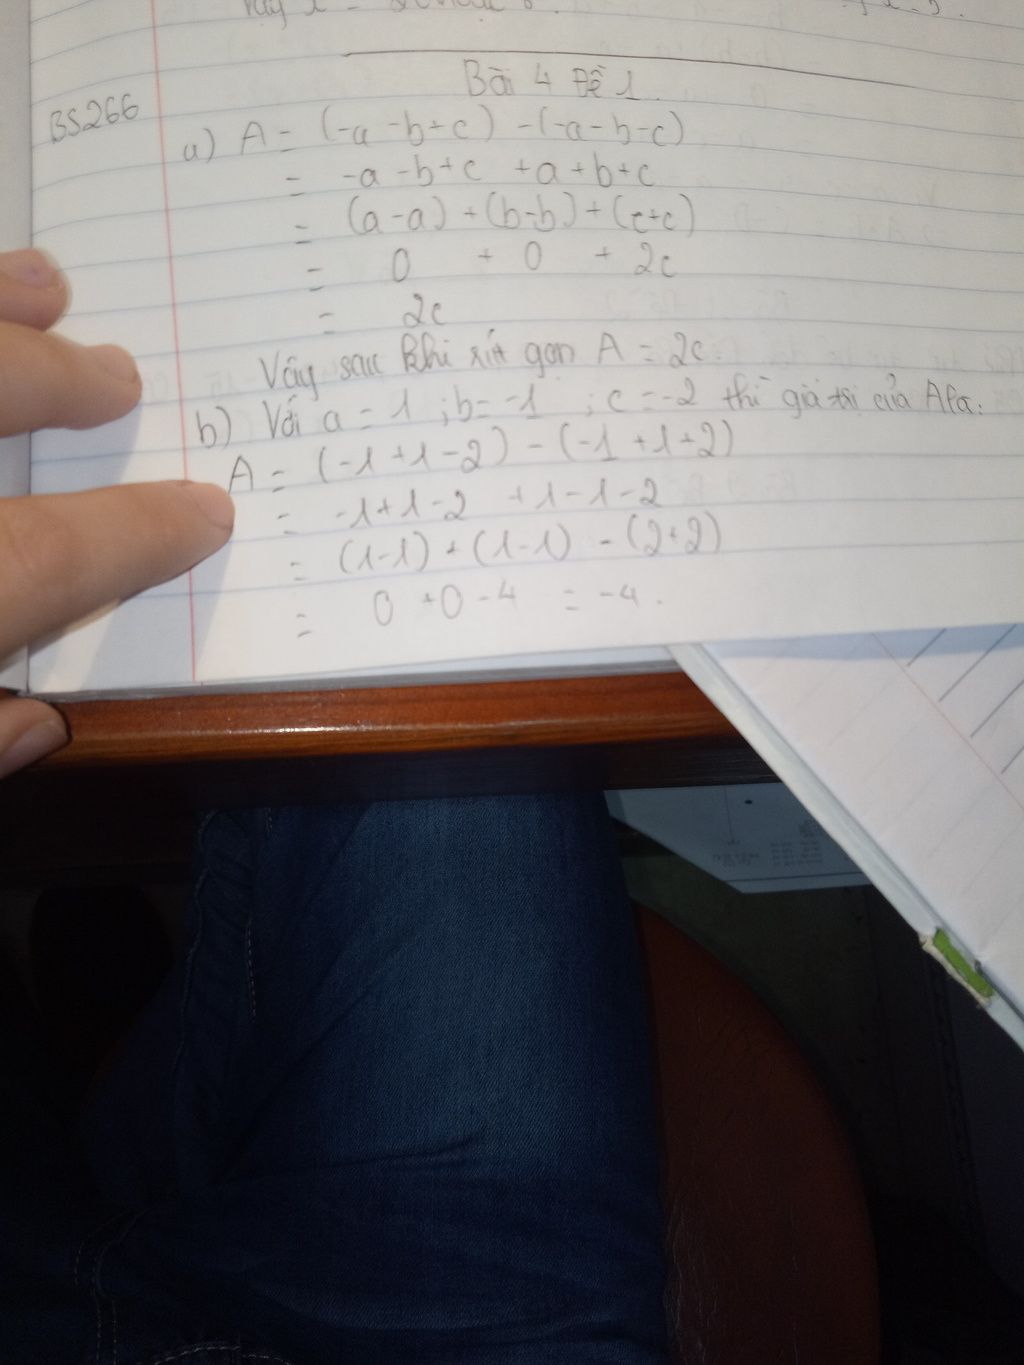 Bài 4 Đề 1
BS266
a) A = (-a - b + c) - (-a - b - c)
= -a - b + c + a + b + c
= (a - a) + (b - b) + (c + c)
= 0 + 0 + 2c
= 2c
Vậy sau khi rút gọn A = 2c.
b) Với a = 1 ; b = -1 ; c = -2 thì giá trị của A là:
A = (-1 + 1 - 2) - (-1 + 1 + 2)
= -1 + 1 - 2 + 1 - 1 - 2
= (1 - 1) + (1 - 1) - (2 + 2)
= 0 + 0 - 4 = -4.